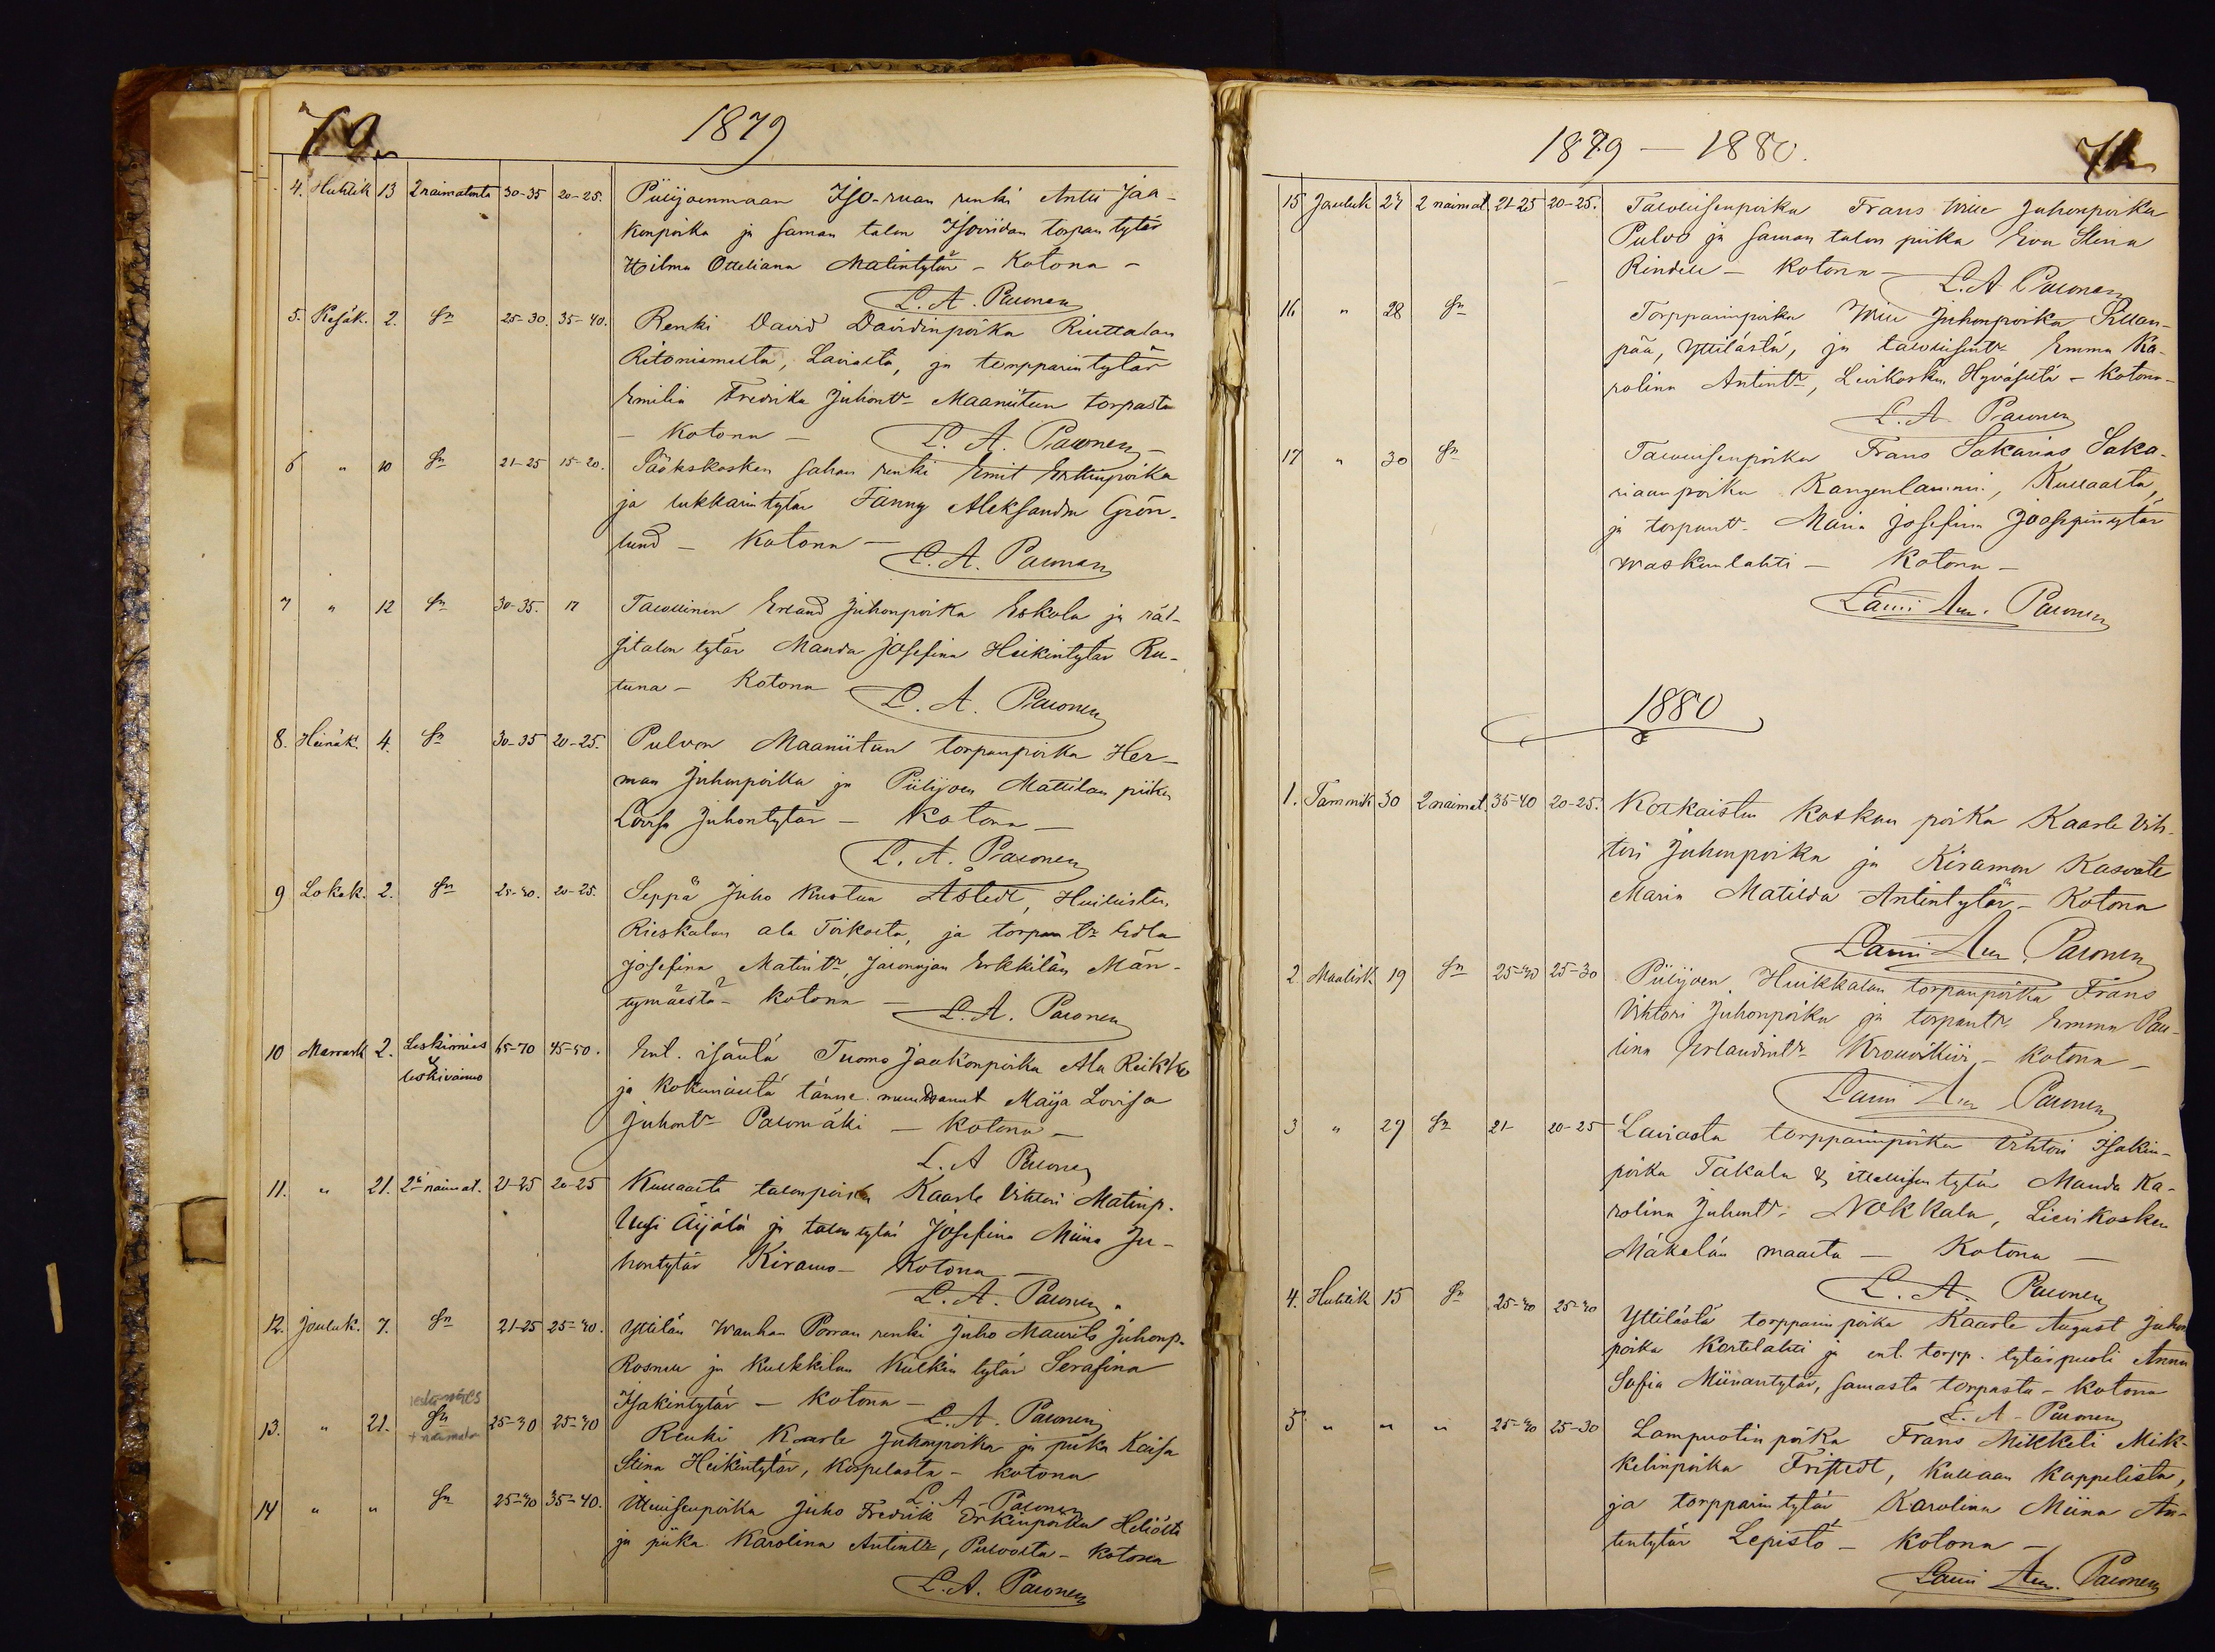 70
1879
4. Huhtik 13 2 naimatonta 30-35 20-25. Piilijoenmaan Iso- renki Antti Jaa-
konpoika ja saman talon torpan tytär
Hilma Otteliana Matintytär - Kotona -
L. A. Paronen
5. Kesäk. 2. Sn 25-30. 35-40. Renki David Davidinpoika Riuttalan
Ritoniemestä, Laviasta, ja torpparin tytär
Emilia Fredrika Juhontr Maaniitun torpasta
- Kotona - L. A. Paronen
6 " 10 Sn 21-25 15-20. Sääkskosken sahan renki Emil Erkinpoika
ja lukkarin tytär Fanny Aleksandra Grön-
lund - Kotona -
L. A. Paronen
7 " 12 Sn 30-35. 17 Talollinen Erland Juhonpoika Eskola ja rät-
sitalon tytär Manda Josefina Heikintytär Ru-
tuna - Kotona
L. A. Paronen
8. Heinäk. 4. Sn 30-35 20-25. Pulvon Maaniitun torpanpoika Her-
man Juhonpoika ja Piilijoen Mattilan piika
Lovisa Juhontytär - Kotona -
L. A. Paronen
9 Lokak. 2. Sn 25-30. 20-25. Seppä Juho Kustaa Åstedt, Huittisten
Rieskalan ala Toikosta, ja torpan tr Edla
Josefina Matintr, Jaronojan Erkkilän Män-
tymäestä - Kotona -
L. A. Paronen
10 Marrask 2. Leskimies & leskivaimo 65-70 45-50. Ent. isäntä Tuomo Jaakonpoika Ala Reikko
ja Kokemäeltä tänne muuttanut Maija Lovisa
Juhontr Palomäki - Kotona -
L. A Paronen
11. " 21. 2 naimat. 21-25 20-25 Kullaasta talonpoika Kaarle Vihtori Matinp.
Uusi Äijälä ja talon tytär Josefina Miina Ju-
hontytär Kiramo - Kotona -
L. A. Paronen
12. Jouluk. 7. Sn 21-25 25-30. Yttilän Wanhan Porran renki Juho Maurits Juhonp.
Rosnell ja Kulkkilan Kulkin tytär Serafina
Isakintytär - Kotona -
L. A. Paronen
13. " 21. leskimies Sn + naimaton 25-30 25-30 Renki Kaarle Juhonpoika ja piika Kaisa
Stina Heikintytär, Korpelasta - Kotona
L. A. Paronen
14 " " Sn 25-30 35-40. Itsellisenpoika Juho Fredrik Erkinpoika
ja piika Karolina Antintr, Pulvosta - Kotona
L. A. Paronen
1879 - 1880.
71
15 Jouluk 27 2 naimat. 21-25 20-25. Talollisenpoika Frans Wille Juhonpoika
Pulvo ja saman talon piika Eva Stina
Rindell - Kotona -
L. A Paronen
16 " 28 Sn Torpparinpoika Wille Juhonpoika Sillan-
pää, Yttilästä, ja talollisentr Emma Ka-
rolina Antintr, Levikosken Hyväsiltä - Kotona -
L. A. Paronen
17 " 30 Sn Talollisenpoika Frans Sakarias Saka-
riaanpoika Kangenlammi, Kullaasta,
ja torpantr. Maria Josefina Joosepintytär
Waskinlahti - Kotona -
Lauri Aug. Paronen
1880
1. Tammik 30 2 naimat. 35-40 20-25. Korkaisten koskun poika Kaarle Vih-
tori Juhonpoika ja Kiramon Kasvate
Maria Matilda Antintytär - Kotona
Lauri Aug. Paronen
2 Maalisk 19 Sn 25-30 25-30 Piilijoen Huikkalan torpanpoika Frans
Vihtori Juhonpoika ja torpantr Emma Pau-
lina Erlandintr - Kotona -
Lauri Aug Paronen
3 " 29 Sn 21- 20-25 Laviasta torpparinpoika Vihtori Isakin-
poika Takala & itsellisen tytär Manda Ka-
rolina Juhontr. Nokkala, Lievikosken
Mäkelän maasta - Kotona -
L. A. Paronen
4. Huhtik 15 Sn 25-30 25-30 Yttilästä torpparin poika Kaarle August Juhon
poika Kortelahti ja ent. torpp. tytärpuoli Anna
Sofia Miinantytär, samasta torpasta - Kotona
L. A. Paronen
5 " " " 25-30 25-30 Lampuotin poika Frans Mikkeli Mik-
kelinpoika Fristedt, Kullaan kappelista,
ja torpparin tytär Karolina Miina An-
tintytär Lepistö - Kotona -
Lauri Aug. Paronen